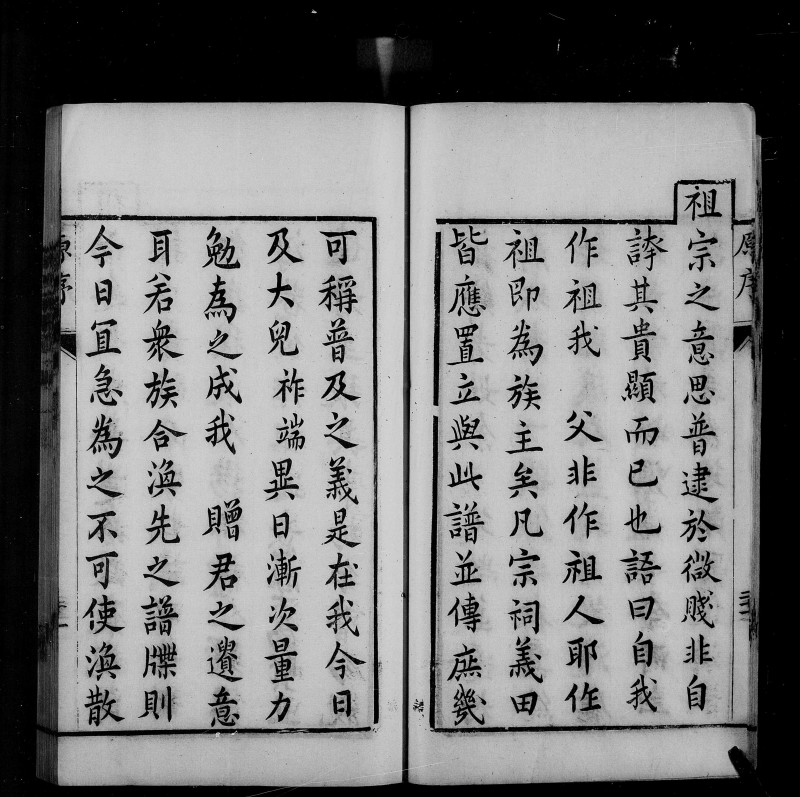 原序
祖宗之意思普逮於微賤非自
誇其貴顯而已也語曰自我
作祖我　父非作祖人耶作
祖即為族主矣凡宗祠義田
皆應置立與此譜並傳庶幾
可稱普及之義是在我今日
及大兒祚端異日漸次量力
勉為之成我　贈君之遺意
耳若衆族合渙先之譜牒則
今日宜急為之不可使渙散
原序